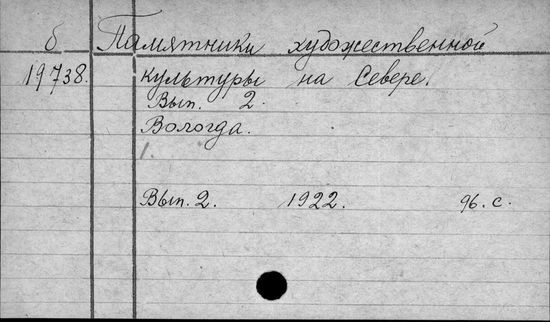 б Памятники художественной
19738. культуры на Севере.
Вып. 2.
Вологда.
1.
Вып. 2. 1922. 96. с.